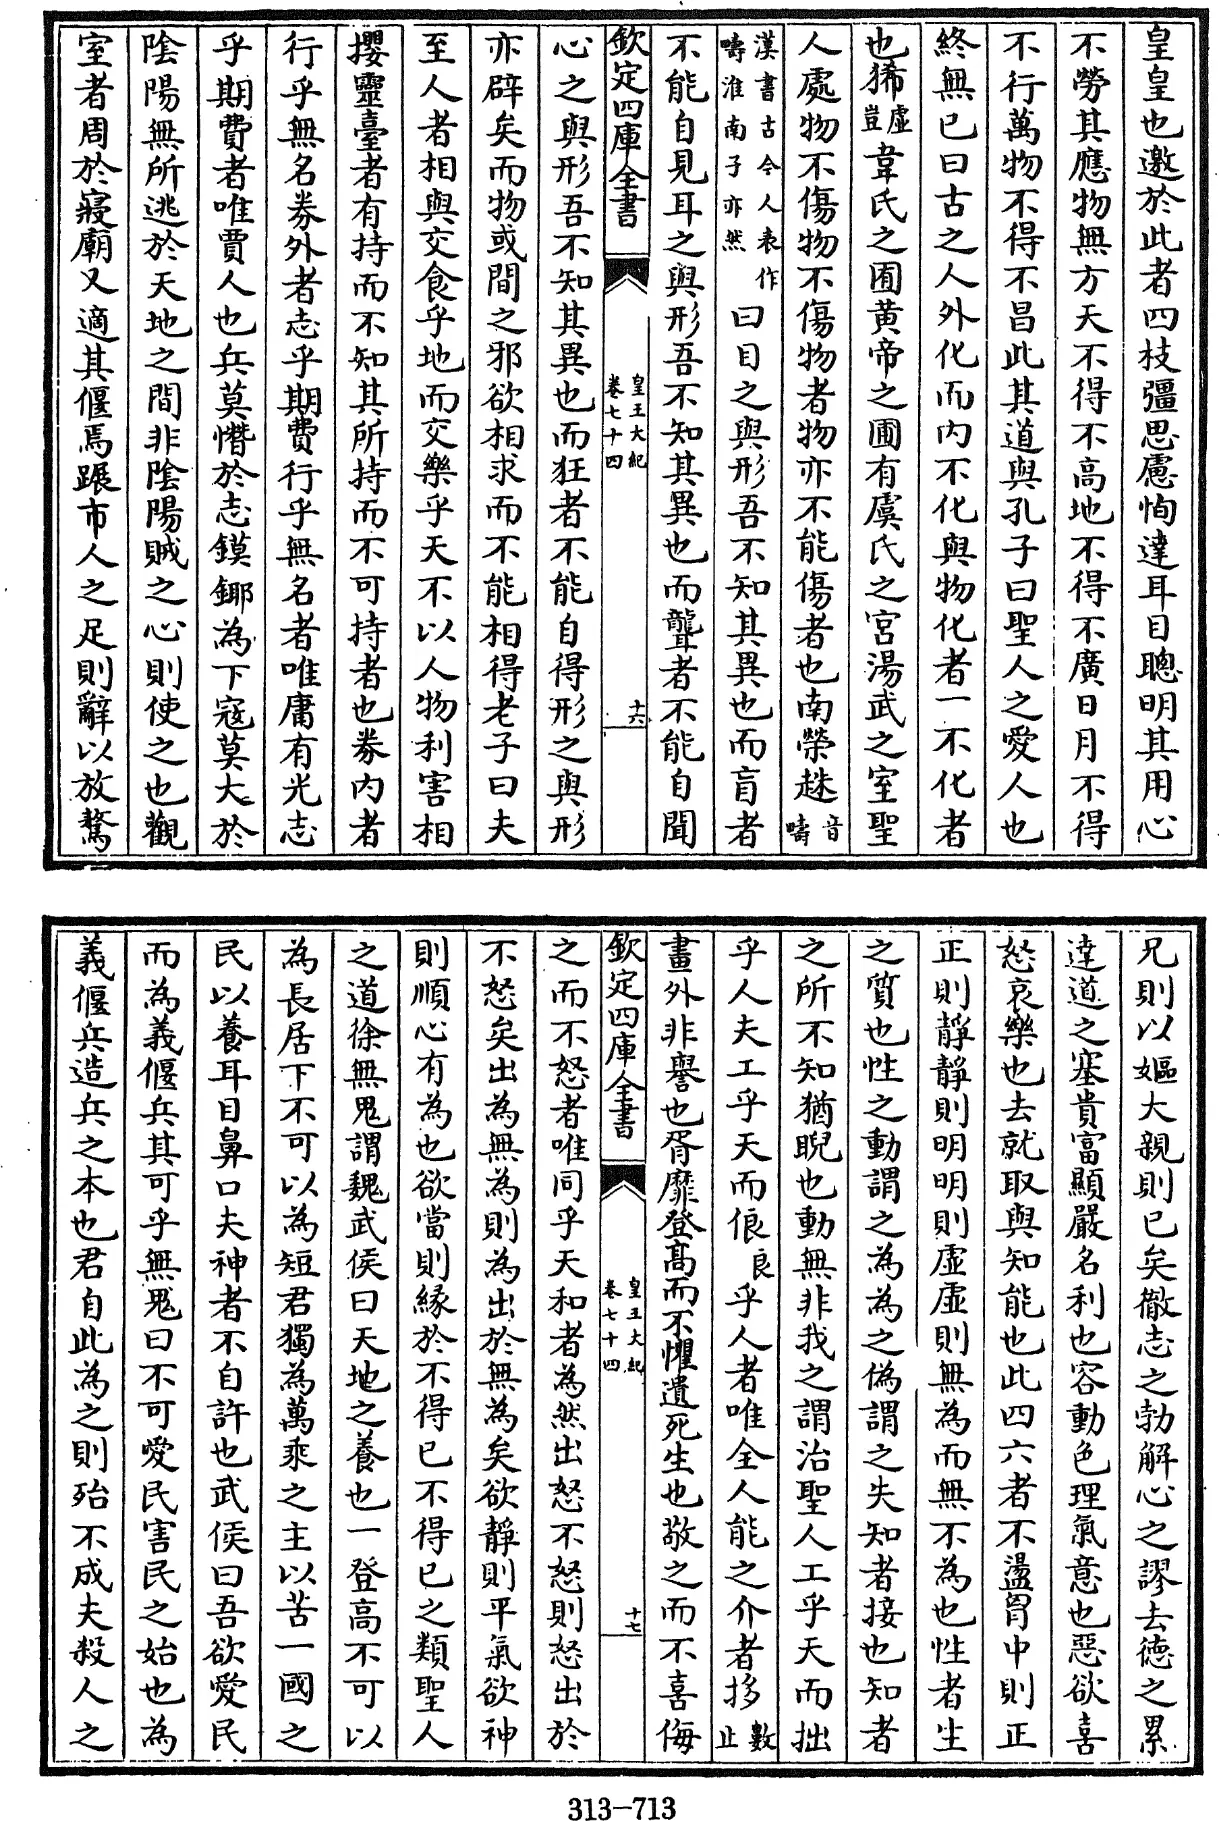 皇皇也邀於此者四枝彊思慮恂達耳目聰明其用心
不勞其應物無方天不得不高地不得不廣日月不得
不行萬物不得不昌此其道與孔子曰聖人之愛人也
終無已曰古之人外化而内不化與物化者一不化者
也狶虛豈韋氏之囿黄帝之圃有虞氏之宮湯武之室聖
人處物不傷物不傷物者物亦不能傷者也南榮趎音疇
漢書古今人表作疇淮南子亦然曰目之與形吾不知其異也而盲者
不能自見耳之與形吾不知其異也而聾者不能自聞
欽定四庫全書
皇王大紀
卷七十四
十六
心之與形吾不知其異也而狂者不能自得形之與形
亦辟矣而物或間之邪欲相求而不能相得老子曰夫
至人者相與交食乎地而交樂乎天不以人物利害相
攖靈臺者有持而不知其所持而不可持者也券内者
行乎無名券外者志乎期費行乎無名者唯庸有光志
乎期費者唯賈人也兵莫憯於志鏌鎁為下冦莫大於
隂陽無所逃於天地之間非隂陽賊之心則使之也觀
室者周於寢廟又適其偃焉蹍市人之足則辭以放驁
兄則以嫗大親則已矣徹志之勃解心之謬去徳之累
達道之塞貴富顯嚴名利也容動色理氣意也惡欲喜
怒哀樂也去就取與知能也此四六者不盪胷中則正
正則靜靜則明明則虛虛則無為而無不為也性者生
之質也性之動謂之為為之偽謂之失知者接也知者
之所不知猶睨也動無非我之謂治聖人工乎天而拙
乎人夫工乎天而俍良乎人者唯全人能之介者拸數止
畫外非譽也胥靡登高而不懼遺死生也敬之而不喜侮
欽定四庫全書
皇王大紀
卷七十四
十七
之而不怒者唯同乎天和者為然出怒不怒則怒出於
不怒矣出為無為則為出於無為矣欲靜則平氣欲神
則順心有為也欲當則緣於不得已不得已之類聖人
之道徐無鬼謂魏武侯曰天地之養也一登高不可以
為長居下不可以為短君獨為萬乘之主以苦一國之
民以養耳目鼻口夫神者不自許也武侯曰吾欲愛民
而為義偃兵其可乎無鬼曰不可愛民害民之始也為
義偃兵造兵之本也君自此為之則殆不成夫殺人之
313-713